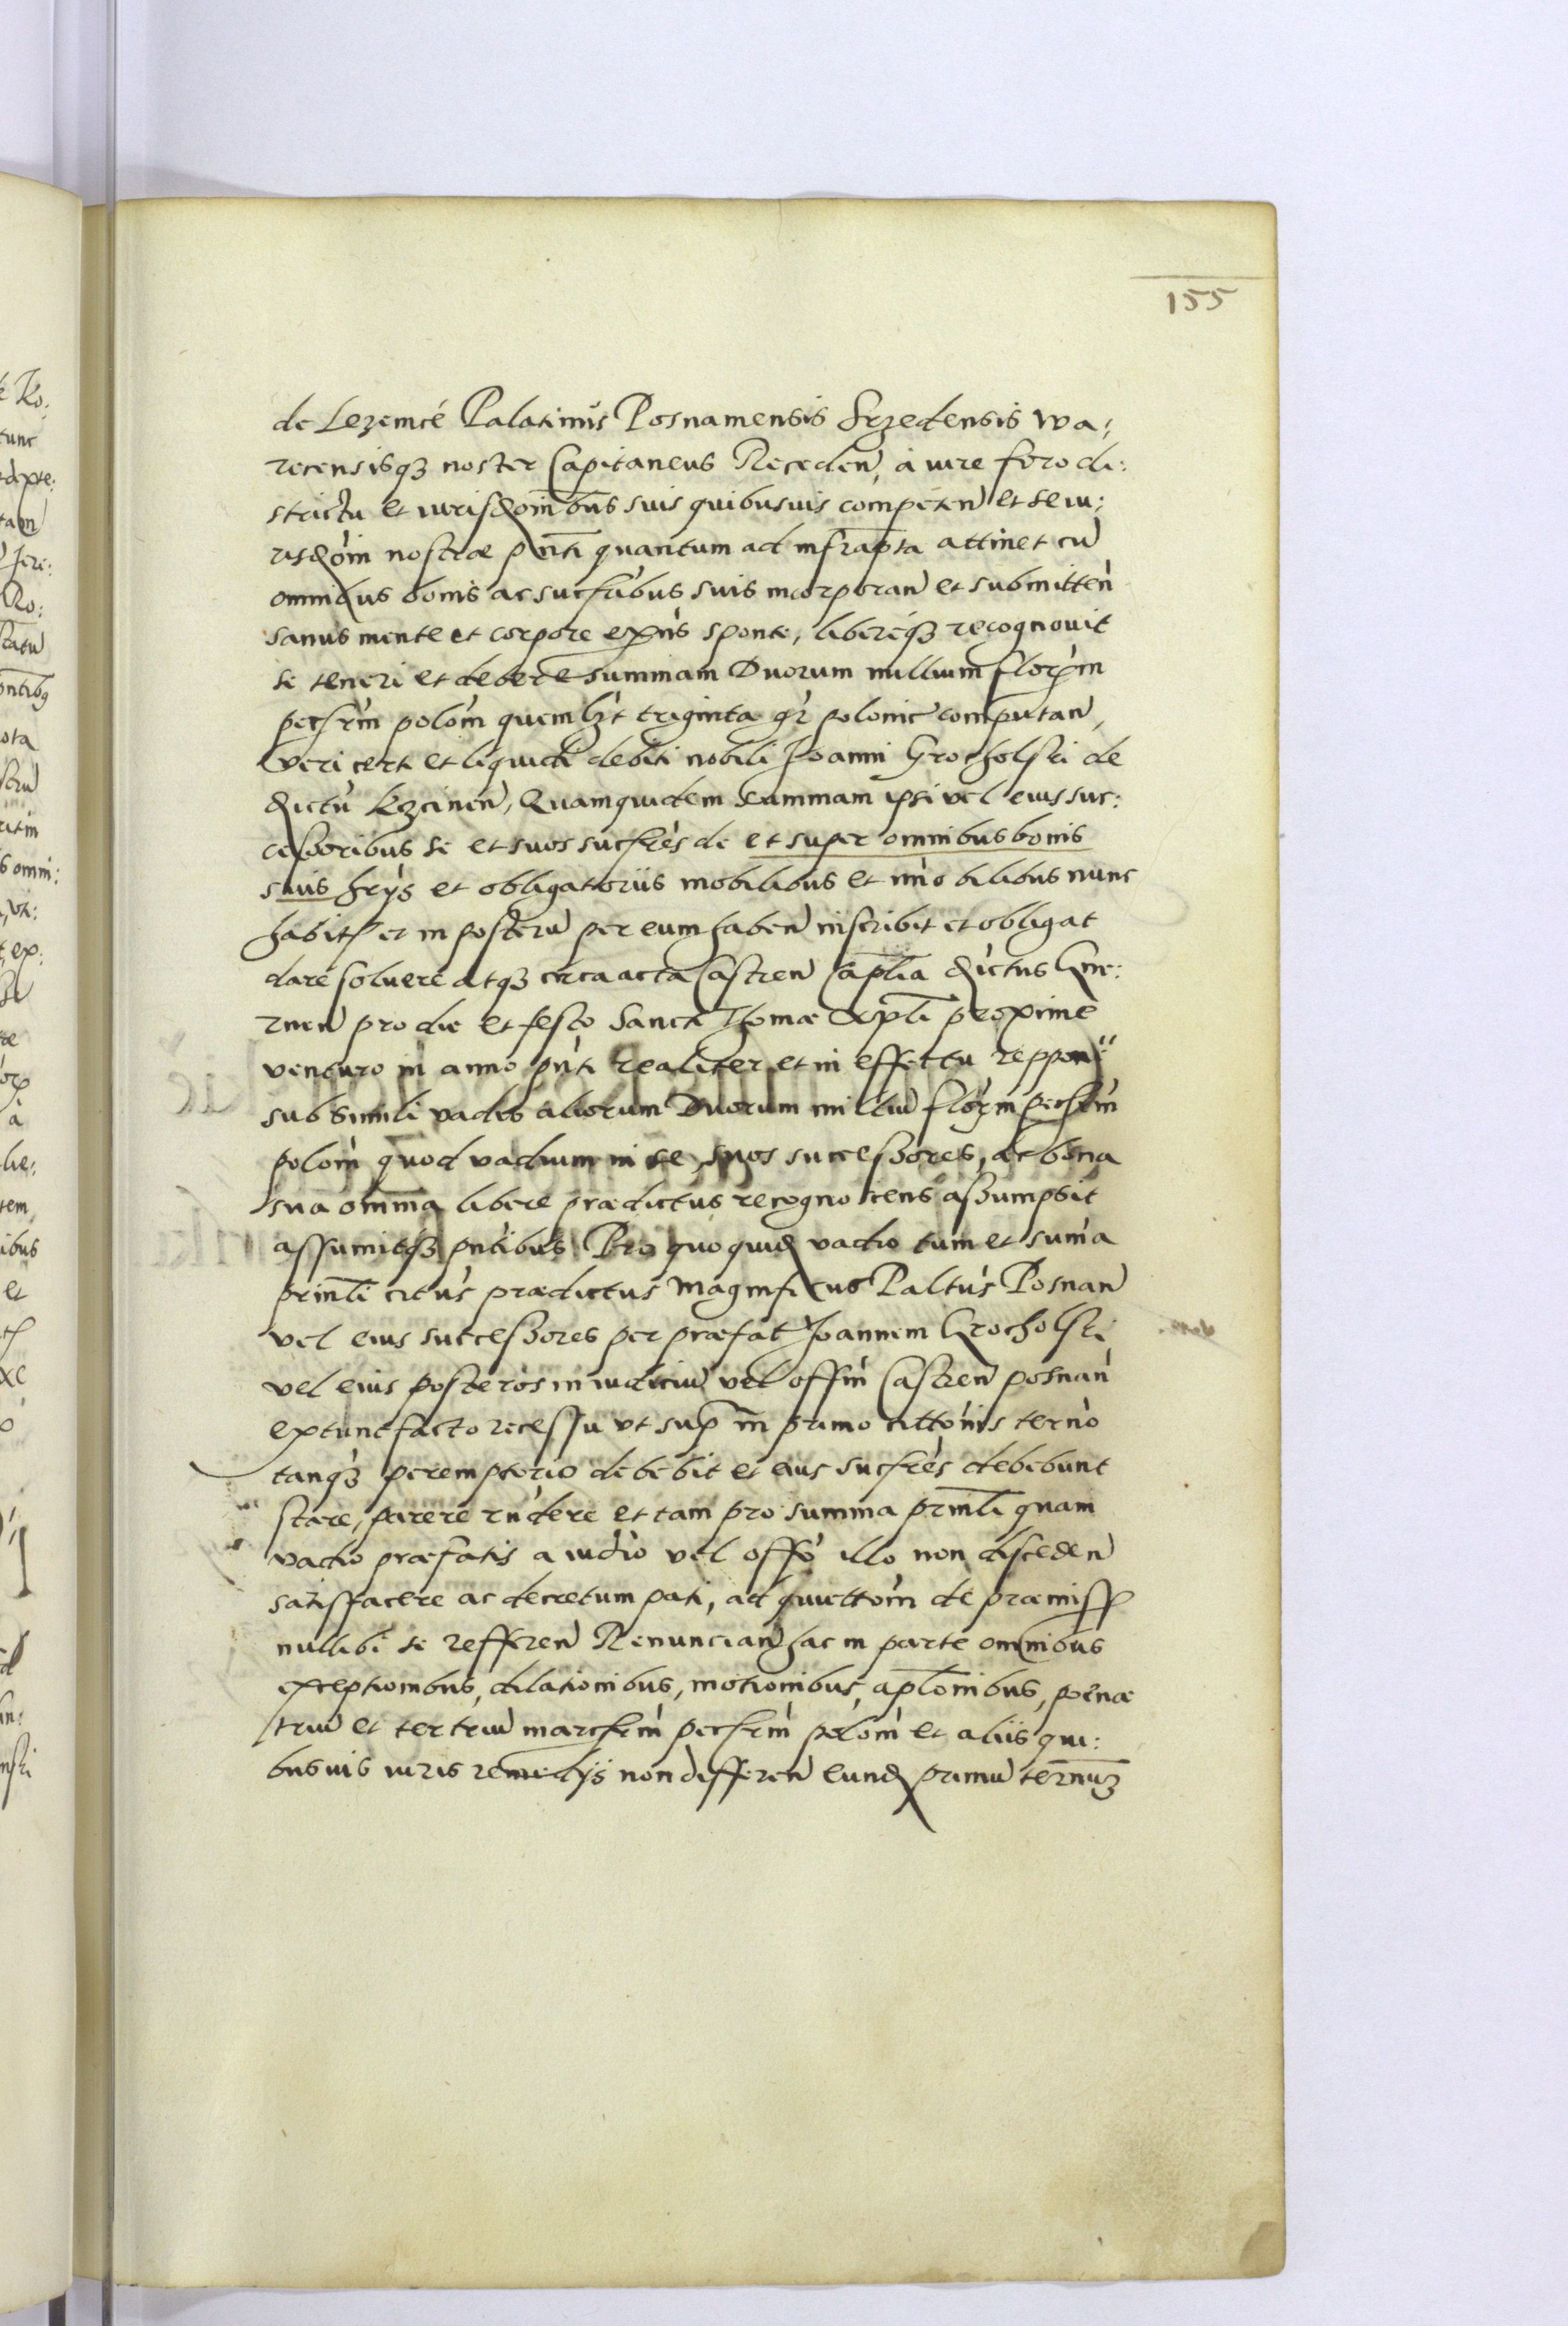 155
de Lezemcé Palatinus Posnamensis Srzedensis Wa:
recensisqȝ noster Capitaneus Receden̄, à iure foro di:
strictu et iurisd̄oinibus suis quibusuis competen̄ et se iu:
risd̄oin nostræ pn̄ti quantum ad infrapta attinet cū
omnibus bonis ac sucrūbus suis incorporan̄ et submitten̄
sanus mente et corpore exn̄s sponte, libereqȝ recognouit
se teneri et debere summam Duorum millium florm̄
pecrm̄ polom̄ quemlȝt triginta gr̄ polonic computan̄,
veri certi et liquidi debiti nobili Joanni Grocholski de
dictū Kcinen̄, Quamquidem summam ipsi vel eius suc:
cessoribus se et suos sucres̄ de et super omnibus bonis
suis hrȳs et obligatoriis mobilibus et im̄obilibus nunc
habitꝭ et in posterū per eum haben̄ inscribit et obligat
dare soluere atqȝ circa acta Castren̄ Caplia dictus Gne:
znen̄ pro die et festo Sancti Thomæ Apli proxime
venturo in anno pn̄ti realiter et in effectu reppon̄
sub simili vadio aliorum Duorum milliū florm̄ pecrm̄
polom̄ quod vadium in se, suos successores, ac bona
sua omnia libere prædictus recognoscens assumpsit
assumitqȝ pn̄tibus Pro quo quid vadio tum et sum̄a
prinlī citūs prædictus Magnificus Paltūs Posnan̄
vel eius successores per præfat Joannem Grocholski
vel eius posteros in iudiciū vel offm̄ Castren̄ posnan̄
extunc facto recessu vt sup̄ in primo cittōnis ternō
tanqȝ peremptorio debebit et eius sucres̄ debebunt
stare, parere rn̄dere et tam pro summa prinlī quam
vadio præfatis a iudio vel offō illo non disceden̄
satisfacere ac decretum pati, ad quiettom̄ de præmissꝭ
nullibi se refferen̄ Renuncian̄ hac in parte omnibus
exceptionibus, dilationibus, motionibus, aplonibus, poenæ
triū et ter triū marcrm̄ pecrm̄ polom̄ et aliis qui:
busuis iuris remedȳs non differen̄ eund primū ternūȝ